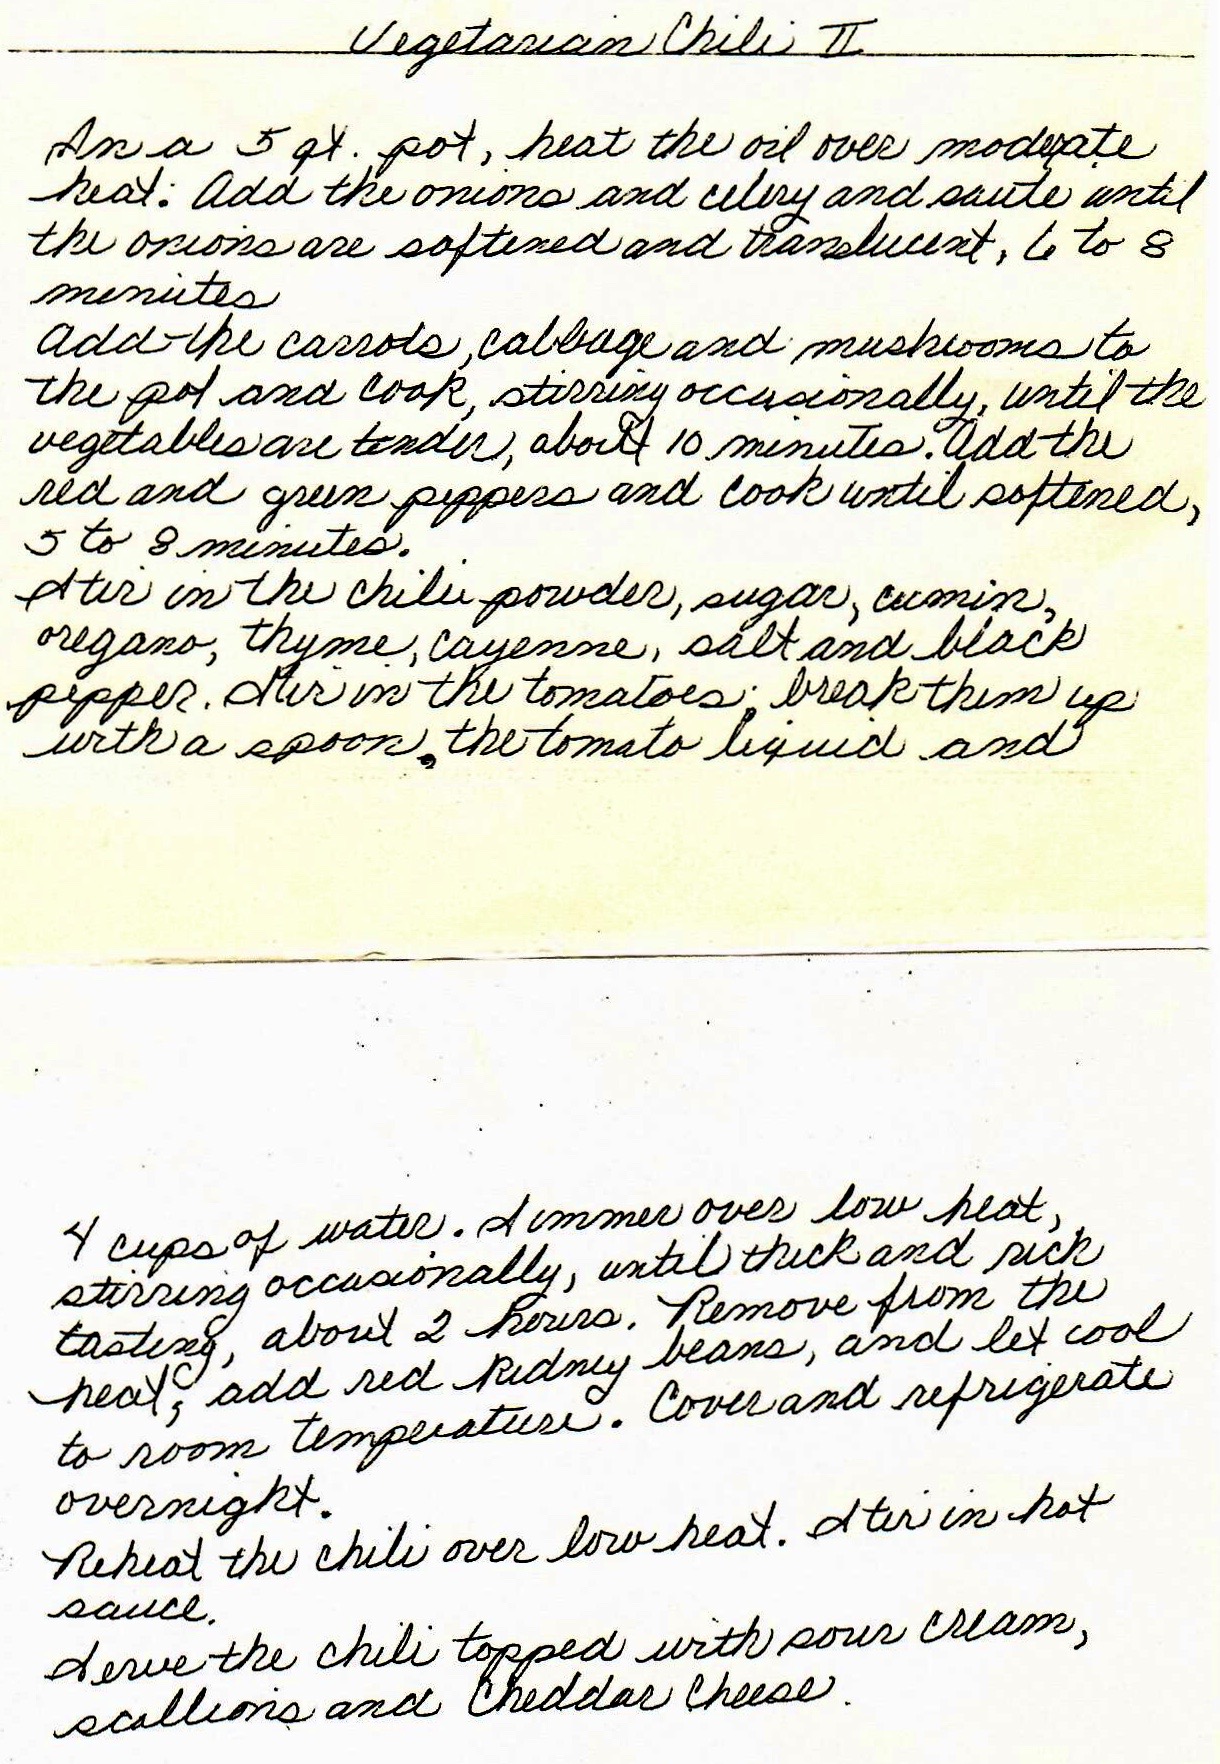 Vegetarian Chili II
In a 5 qt. pot, heat the oil over moderate
heat. Add the onions and celery and saute until
the onions are softened and translucent, 6 to 8
minutes
Add the carrots, cabbage and mushrooms to
the pot and cook, stirring occasionally, until the
vegetables are tender, about 10 minutes. Add the
red and green peppers and cook until softened,
5 to 8 minutes.
Stir in the chili powder, sugar, cumin,
oregano, thyme, cayenne, salt and black
pepper. Stir in the tomatoes; break them up
with a spoon, the tomato liquid and
4 cups of water. Simmer over low heat,
stirring occasionally, until thick and rich
tasting, about 2 hours. Remove from the
heat, add red kidney beans, and let cool
to room temperature. Cover and refrigerate
overnight.
Reheat the chili over low heat. Stir in hot
sauce.
Serve the chili topped with sour cream,
scallions and Cheddar Cheese.